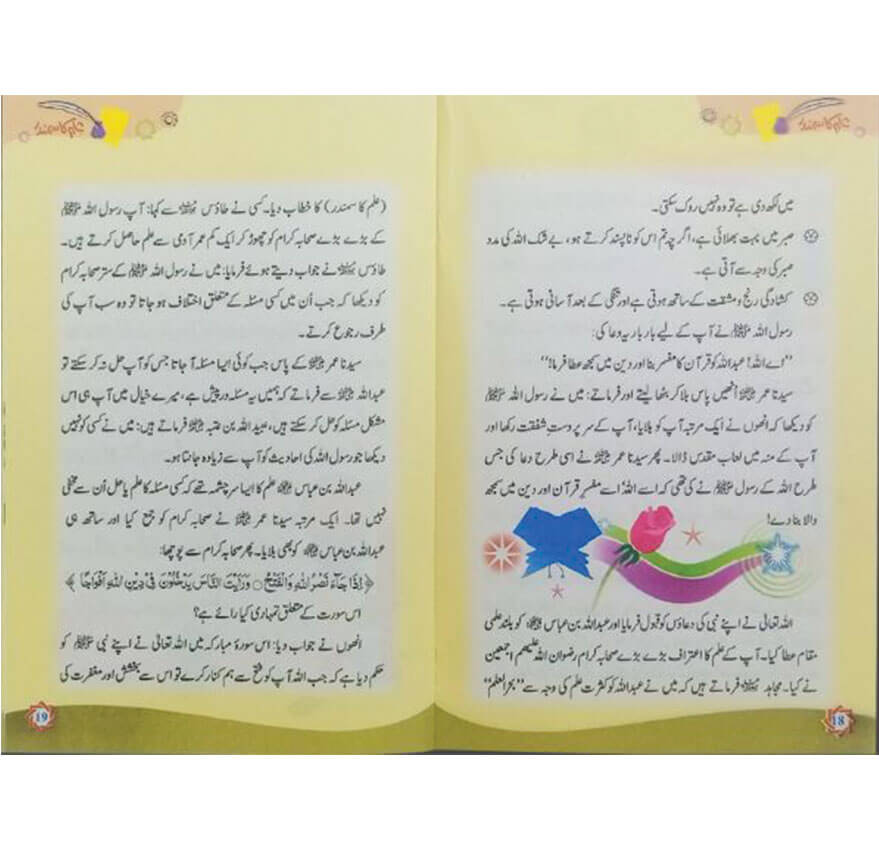 میں لکھ دی ہے تو وہ نہیں روک سکتی۔
صبر میں بہت بھلائی ہے، اگرچہ تم اس کو ناپسند کرتے ہو، بے شک اللہ کی مدد
صبر کی وجہ سے آتی ہے۔
کشادگی رنج و مشقت کے ساتھ ہوتی ہے اور تنگی کے بعد آسانی ہوتی ہے۔
رسول اللہ ﷺ نے آپ کے لیے بار بار یہ دعا کی:
”اے اللہ! عبداللہ کو قرآن کا مفسر بنا اور دین میں سمجھ عطا فرما!“
سیدنا عمر رضی اللہ عنہ انھیں پاس بلا کر بٹھا لیتے اور فرماتے: میں نے رسول اللہ ﷺ
کو دیکھا کہ انھوں نے ایک مرتبہ آپ کو بلایا، آپ کے سر پر دستِ شفقت رکھا اور
آپ کے منہ میں لعاب مقدس ڈالا۔ پھر سیدنا عمر رضی اللہ عنہ نے اسی طرح دعا کی جس
طرح اللہ کے رسول ﷺ نے کی تھی کہ اے اللہ! اسے مفسرِ قرآن اور دین میں سمجھ
والا بنا دے!
اللہ تعالیٰ نے اپنے نبی کی دعاؤں کو قبول فرمایا اور عبداللہ بن عباس رضی اللہ عنہ کو بلند علمی
مقام عطا کیا۔ آپ کے علم کا اعتراف بڑے بڑے صحابہ کرام رضوان اللہ علیھم اجمعین
نے کیا۔ مجاہد رحمہ اللہ فرماتے ہیں کہ میں نے عبداللہ کو کثرت علم کی وجہ سے ”بحرالعلم“
18
(علم کا سمندر) کا خطاب دیا۔ کسی نے طاؤس رحمہ اللہ سے کہا: آپ رسول اللہ ﷺ
کے بڑے بڑے صحابہ کرام کو چھوڑ کر ایک کم عمر آدمی سے علم حاصل کرتے ہیں۔
طاؤس رحمہ اللہ نے جواب دیتے ہوئے فرمایا: میں نے رسول اللہ ﷺ کے ستر صحابہ کرام
کو دیکھا کہ جب اُن میں کسی مسئلہ کے متعلق اختلاف ہو جاتا تو وہ سب آپ کی
طرف رجوع کرتے۔
سیدنا عمر رضی اللہ عنہ کے پاس جب کوئی ایسا مسئلہ آ جاتا جس کو آپ حل نہ کر سکتے تو
عبداللہ رضی اللہ عنہ سے فرماتے کہ ہمیں یہ مسئلہ درپیش ہے، میرے خیال میں آپ ہی اس
مشکل مسئلہ کو حل کر سکتے ہیں، عبید اللہ بن عتبہ رحمہ اللہ فرماتے ہیں: میں نے کسی کو نہیں
دیکھا جو رسول اللہ کی احادیث کو آپ سے زیادہ جانتا ہو۔
عبداللہ بن عباس رضی اللہ عنہ علم کا ایسا سرچشمہ تھے کہ کسی مسئلہ کا علم یا حل اُن سے مخفی
نہیں تھا۔ ایک مرتبہ سیدنا عمر رضی اللہ عنہ نے صحابہ کرام کو جمع کیا اور ساتھ ہی
عبداللہ بن عباس رضی اللہ عنہ کو بھی بلایا۔ پھر صحابہ کرام سے پوچھا:
﴿ اِذَا جَآءَ نَصْرُ اللّٰهِ وَالْفَتْحُ ○ وَرَاَيْتَ النَّاسَ يَدْخُلُوْنَ فِيْ دِيْنِ اللّٰهِ اَفْوَاجًا ﴾
اس سورت کے متعلق تمہاری کیا رائے ہے؟
انھوں نے جواب دیا: اس سورۂ مبارکہ میں اللہ تعالیٰ نے اپنے نبی ﷺ کو
حکم دیا ہے کہ جب اللہ آپ کو فتح سے ہم کنار کرے تو اس سے بخشش اور مغفرت کی
19